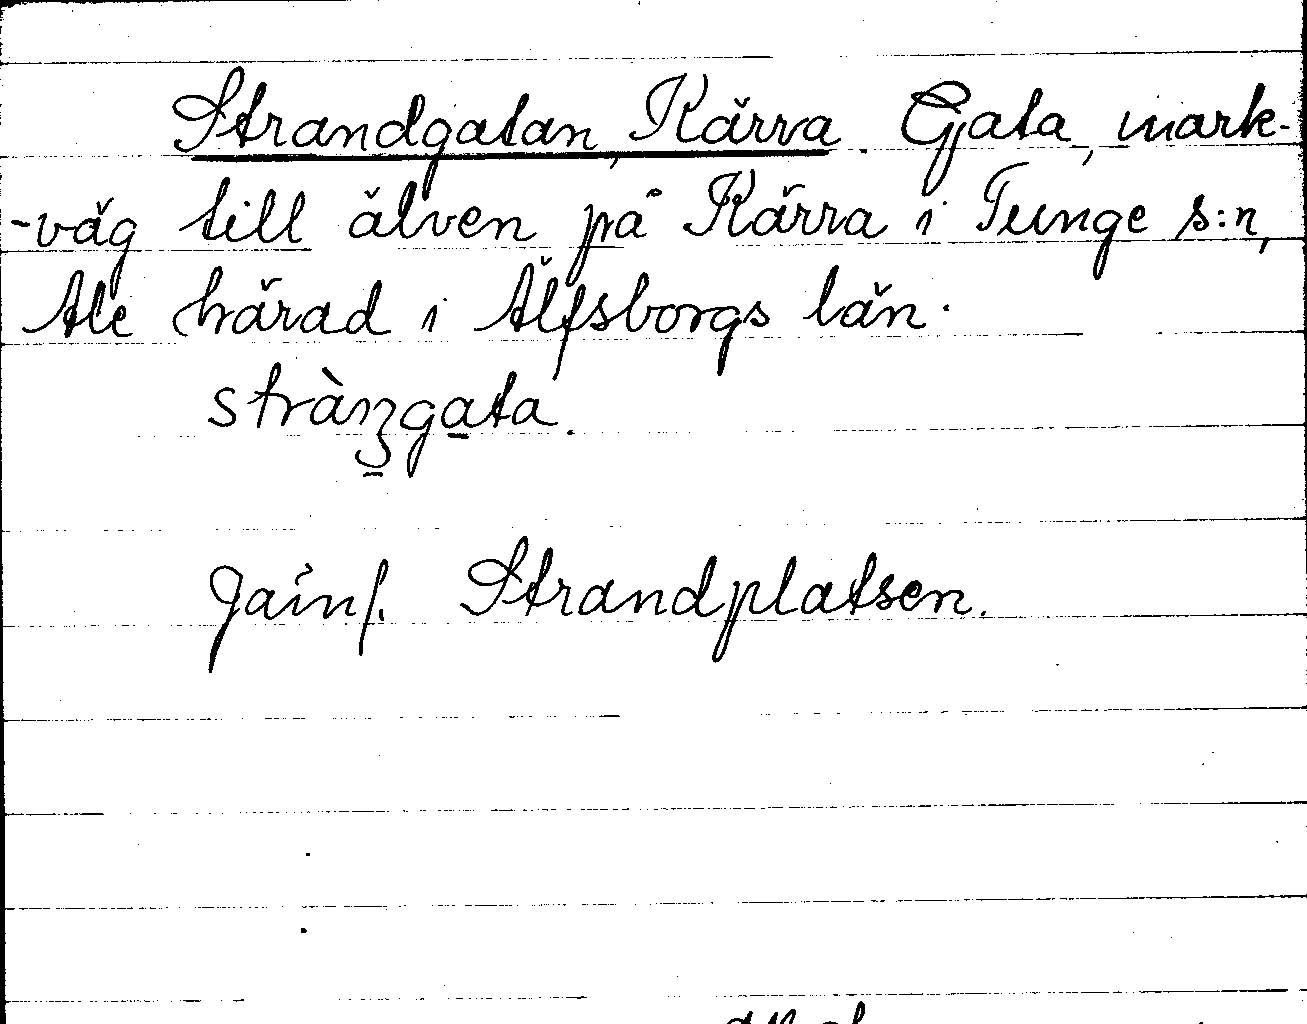 Strandgatan, Kärra. Gata, mark-
-väg till älven på Kärra i Tunge s:n,
Ale härad i Älfsborgs län.
stràn̠ga̠ta.
Jämf. Strandplatsen.